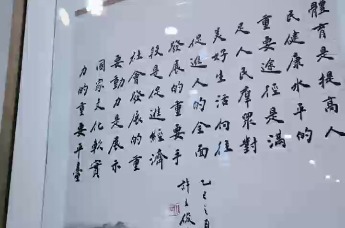 體育是提高人
民健康水平的
重要途徑是滿
足人民群眾對
美好生活向往
促進人的全面
發展的重要手
段是促進經濟
社會發展的重
要動力是展示
國家文化軟實
力的重要平臺